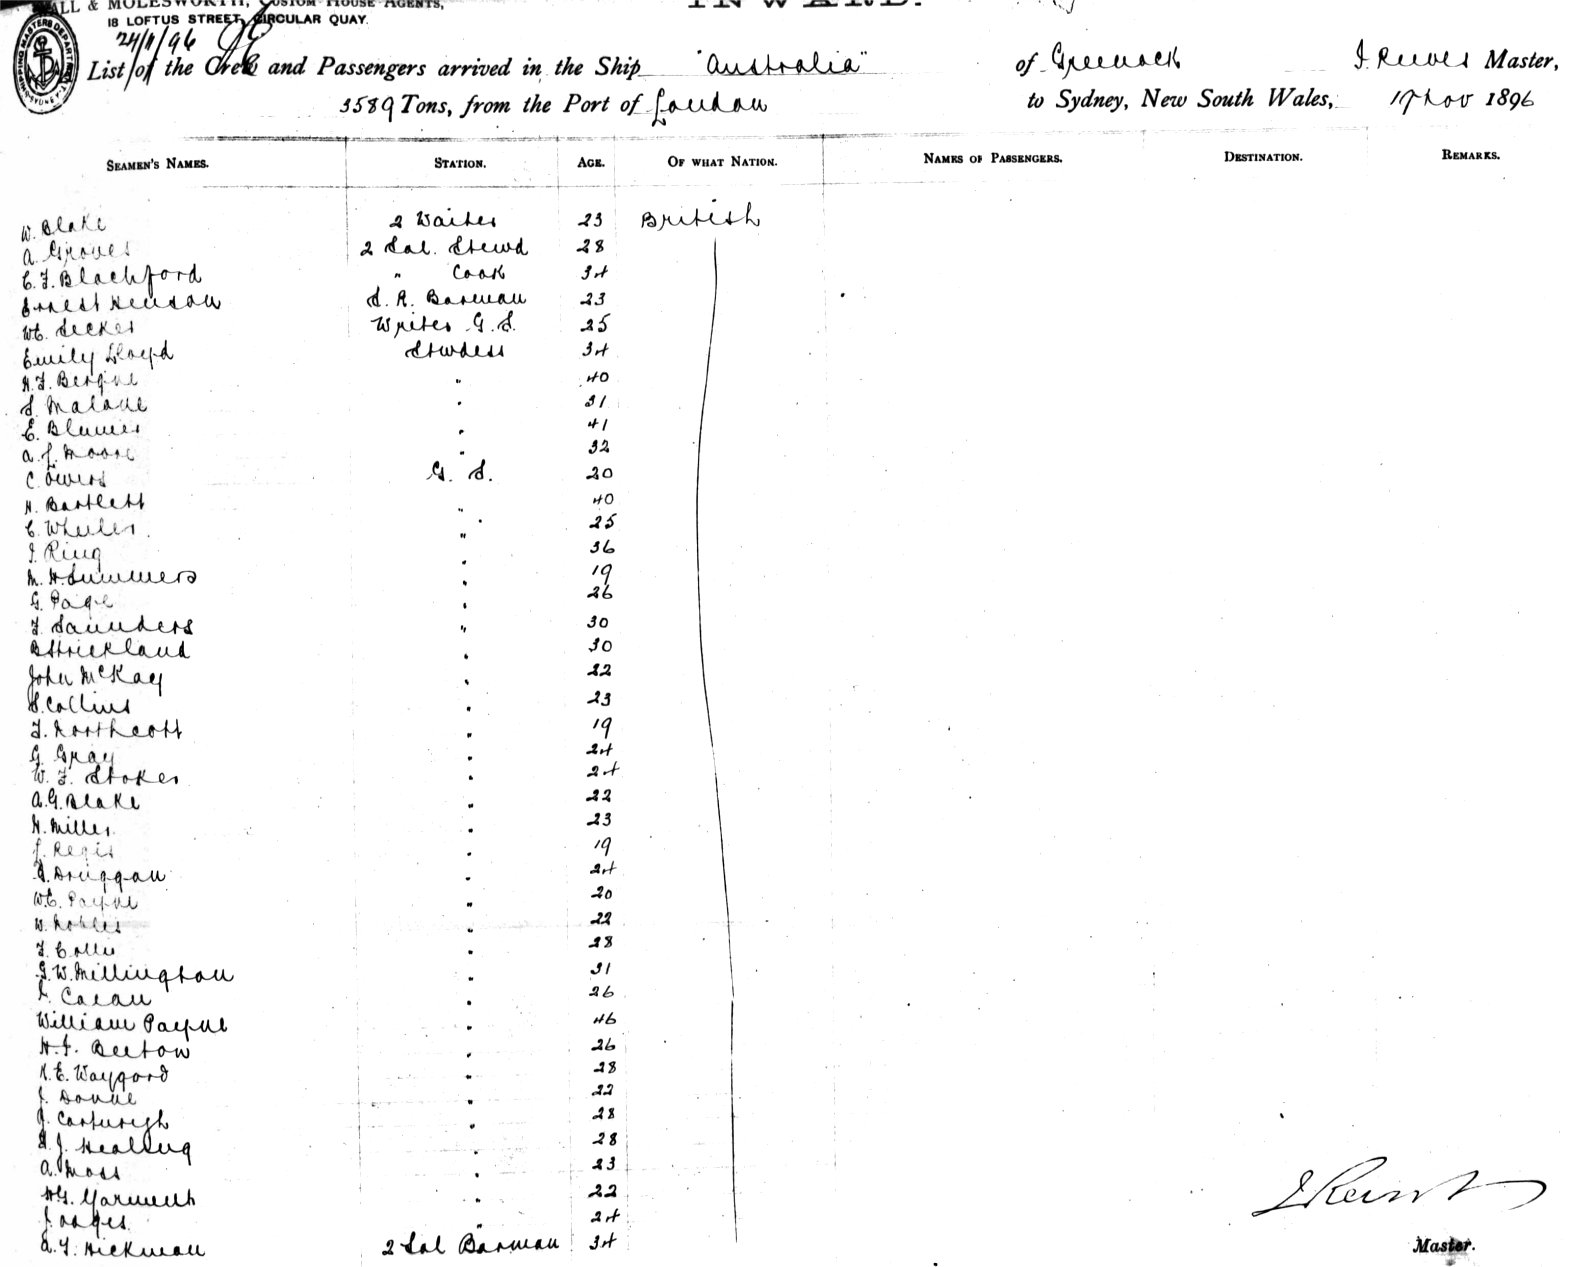 INWARD.
ALL & MOLESWORTH, CUSTOM HOUSE AGENTS,
18 LOFTUS STREET, CIRCULAR QUAY.
24/11/96
List of the Crew and Passengers arrived in the Ship "Australia" of Greenock J. Reeves Master,
3589 Tons, from the Port of London to Sydney, New South Wales, 17 Nov 1896
SEAMEN'S NAMES. STATION. AGE. OF WHAT NATION. NAMES OF PASSENGERS. DESTINATION. REMARKS.
W. Blake 2 Waiter 23 British
A. Groves 2 Sal. Stewd 28
C. F. Blachford " Cook 34
Ernest Henson S. R. Barman 23
W. C. Secker Writer G. S. 25
Emily Lloyd Stwdess 34
H. F. Bergue " 40
S. Malone " 31
E. Blumer " 41
A. L. Moore " 32
C. Owers G. S. 20
H. Bartlett " 40
C. Wheeler " 25
J. Ring " 36
M. H. Summers " 19
G. Page " 26
F. Saunders " 30
B Strickland " 30
John McKay " 22
S. Collins " 23
F. Northcott " 19
G. Gray " 24
W. F. Stokes " 24
A. G. Blake " 22
H. Miller " 23
J. Regis " 19
Druggan " 24
W. C. Payne " 20
W. Nobles " 22
F. Collis " 28
G. W. Millington " 31
" 26
William Payne " 46
H. F. Beeton " 26
H. E. Waygood " 28
J. Donne " 22
J. Cartwrigh " 28
H. J. Healing " 28
A. Moss " 23
" 22
" 24
A. F. Hickman 2 Sal Barman 34
Master.